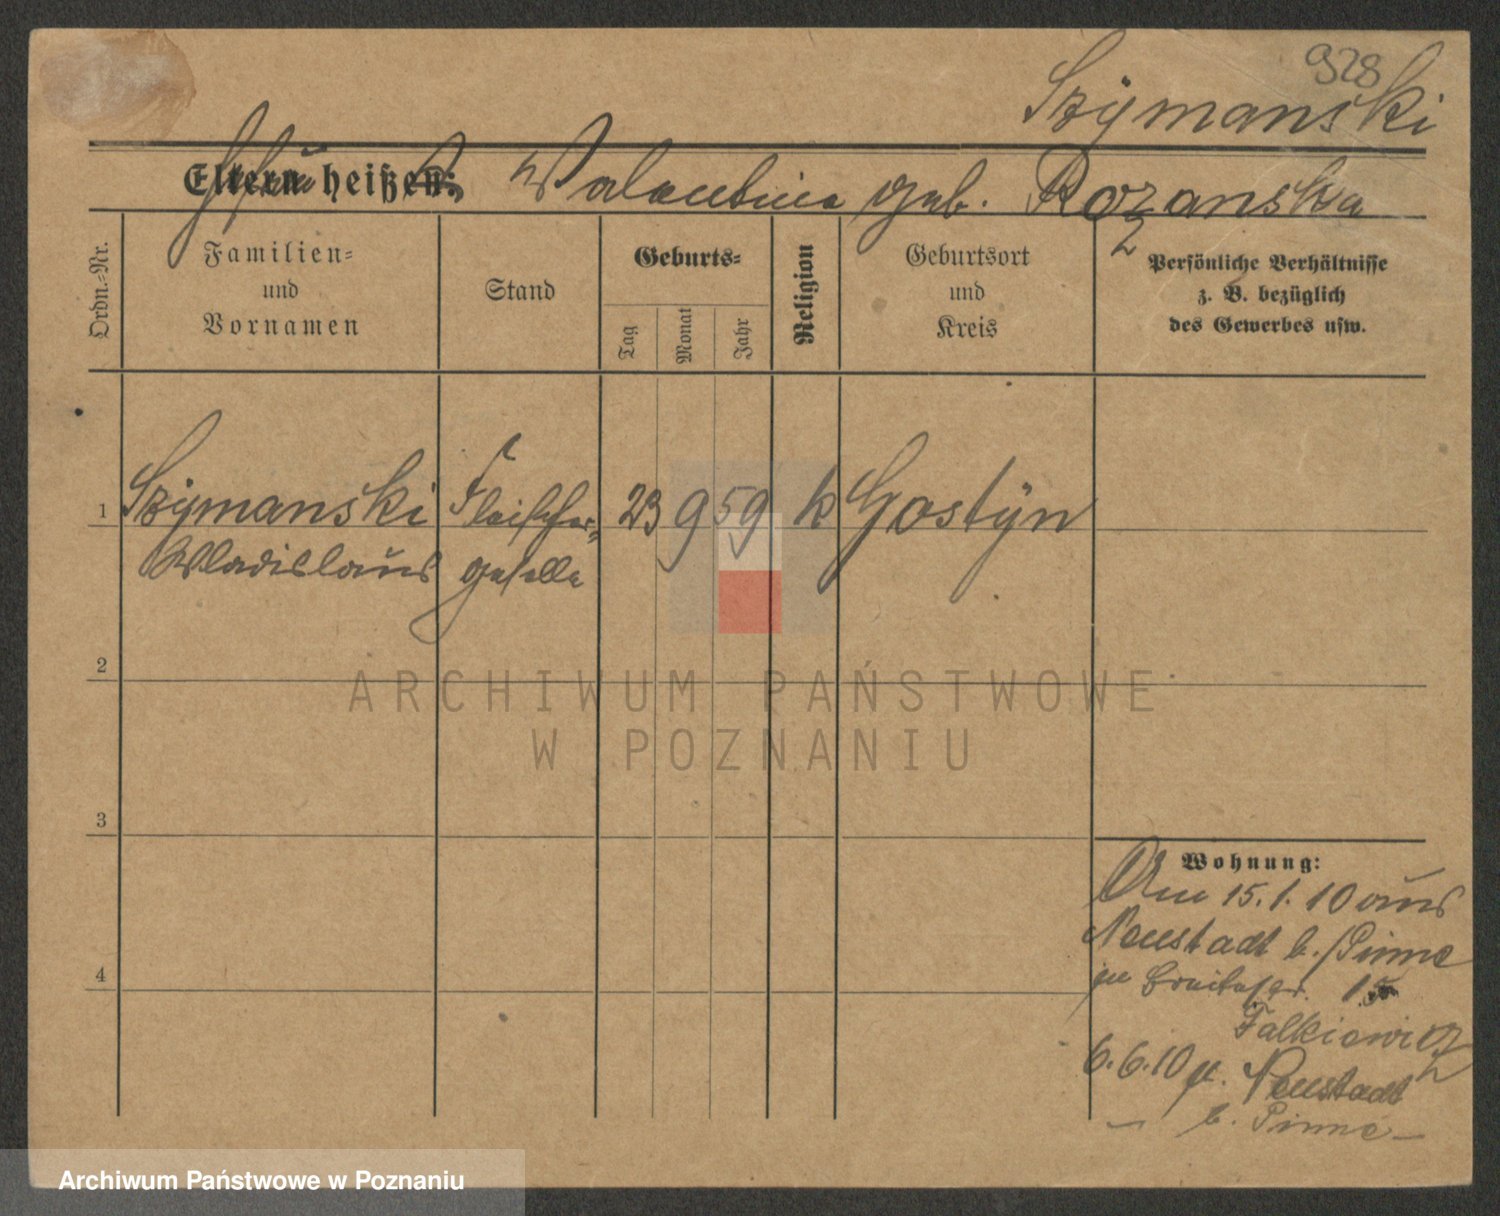 928
Szymanski
Eltern heißen:
Valentine geb. Rozanska
Ordn.=Nr.
Familien=
und
Vornamen
Stand
Geburts=
Tag
Monat
Jahr
Religion
Geburtsort
und
Kreis
Persönliche Verhältnisse
z. B. bezüglich
des Gewerbes usw.
1
Szymanski
Wladislaus
Fleischer=
geselle
23
9
59
k
Gostyn
2
ARCHIWUM PAŃSTWOWE
W POZNANIU
3
4
Wohnung:
Am 15.1.10 aus
Neustadt b./Pinne
zu 15
Falkiewicz
6.6.10 n. Neustadt
b. Pinne
Archiwum Państwowe w Poznaniu